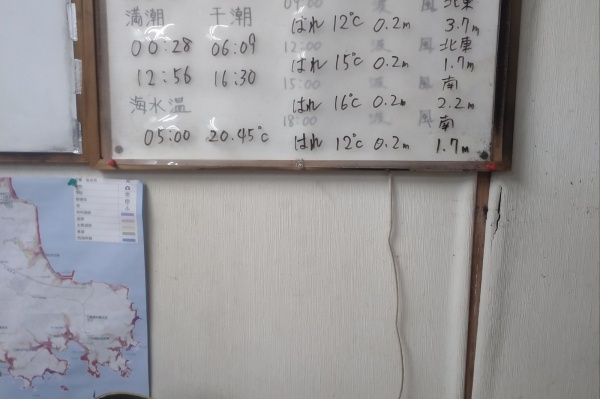 満潮 干潮
00:28 06:09
12:56 16:30
海水温
05:00 20.45℃
09:00 波 風 北東
はれ 12℃ 0.2m 3.7m
12:00 波 風 北東
はれ 15℃ 0.2m 1.7m
15:00 波 風 南
はれ 16℃ 0.2m 2.2m
18:00 波 風 南
はれ 12℃ 0.2m 1.7m